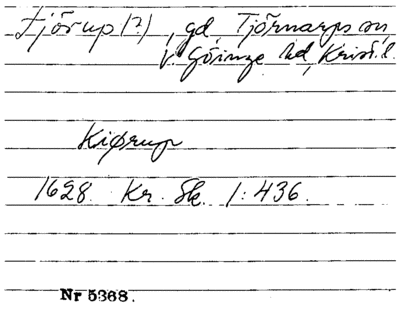 Fjörup (?), gd, Tjörnarps sn,
V. Göinge hd, Krist. l.
Kiørup
1628. Kr. Sk. 1:436.
Nr 5368.